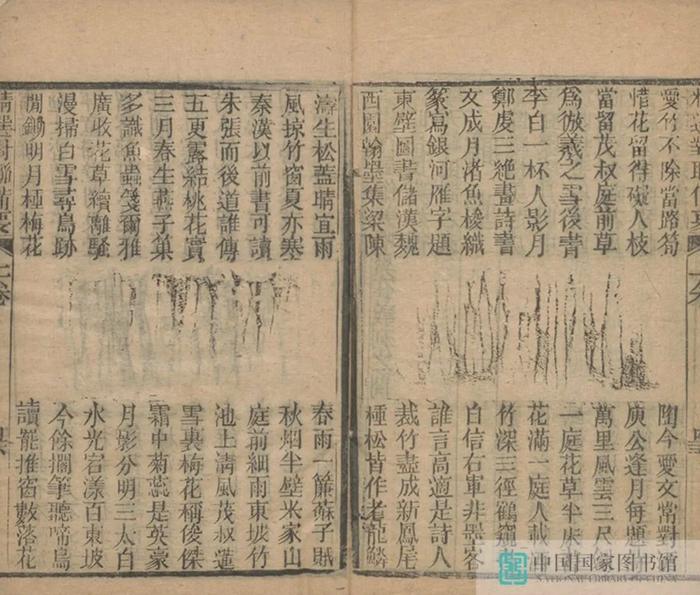 愛竹不除當路筍
惜花留得礙人枝
當留茂叔庭前草
為倣羲之雪後書
李白一杯人影月
鄭虔三絕畫詩書
文成月渚魚梭織
篆寫銀河雁字題
東壁圖書儲漢魏
西園翰墨集梁陳
陶今愛文常對
庾公逢月每題
萬里風雲三尺
一庭花草半床
花滿一庭人載
竹深三徑鶴窺
自信右軍非墨客
誰言高適是詩人
裁竹盡成新鳳尾
種松皆作老龍鱗
濤生松蓋晴宜雨
風掠竹窗夏亦寒
秦漢以前書可讀
朱張而後道誰傳
五更露結桃花實
三月春生燕子巢
多識魚蟲箋爾雅
廣收花草續離騷
漫掃白雪尋鳥跡
閒鋤明月種梅花
春雨一簾蘇子賦
秋烟半壁米家山
庭前細雨東坡竹
池上清風茂叔蓮
雪裏梅花稱俊傑
霜中菊蕊是英豪
月影分明三太白
水光宕漾百東坡
今餘擱筆聽啼鳥
讀罷推窗數落花
上卷
中国国家图书馆
NATIONAL LIBRARY OF CHINA